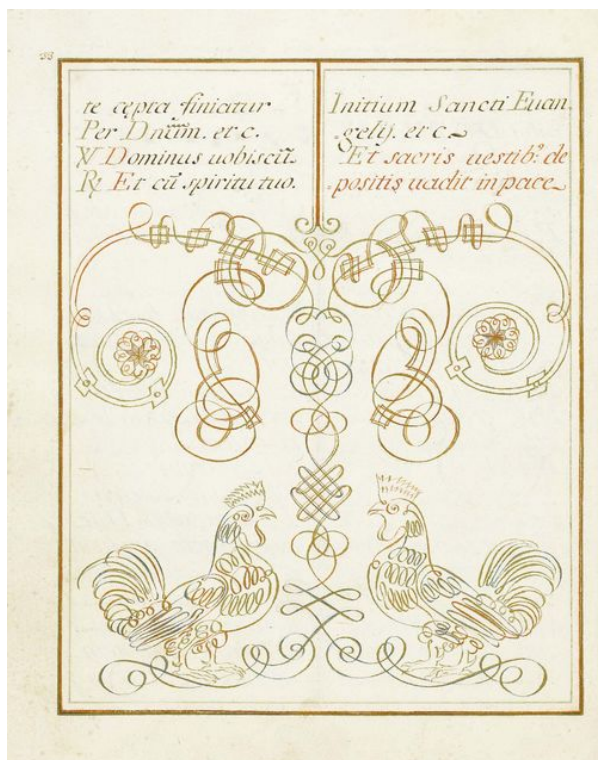 te cępta finiatur
Per Dnūm. et c.
℣ Dominus uobiscū
℟ Et cū spiritu tuo.
Initium Sancti Euan
gelij. et c
Et sacris uestib⁹: de
positis uadit in pace